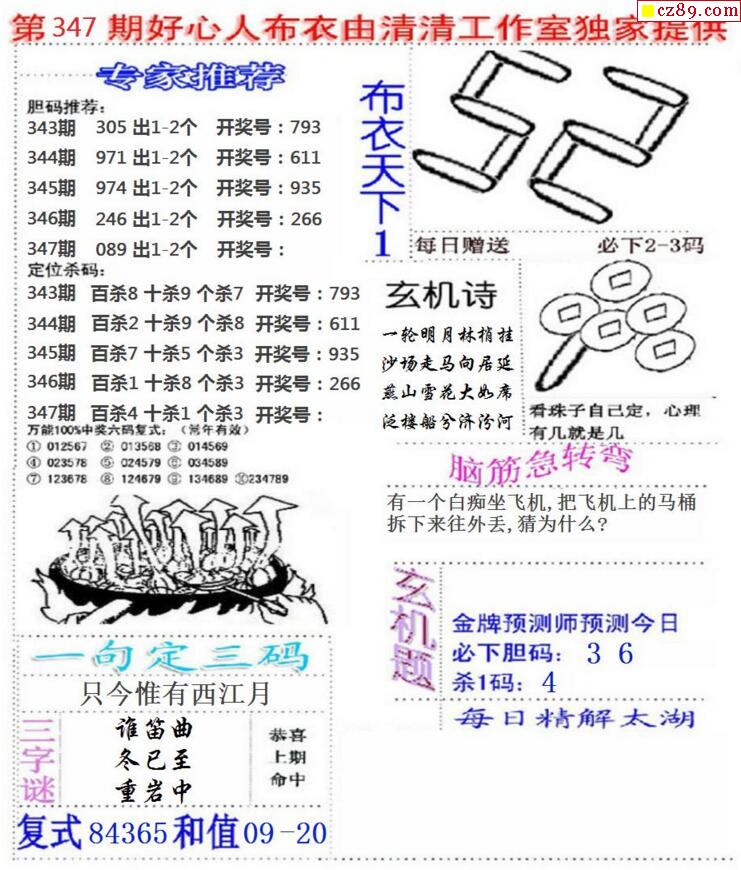 cz89.com
第347期好心人布衣由清清工作室独家提供
专家推荐
胆码推荐:
343期 305 出1-2个 开奖号:793
344期 971 出1-2个 开奖号:611
345期 974 出1-2个 开奖号:935
346期 246 出1-2个 开奖号:266
347期 089 出1-2个 开奖号:
定位杀码:
343期 百杀8 十杀9 个杀7 开奖号:793
344期 百杀2 十杀9 个杀8 开奖号:611
345期 百杀7 十杀5 个杀3 开奖号:935
346期 百杀1 十杀8 个杀3 开奖号:266
347期 百杀4 十杀1 个杀3 开奖号:
万能100%中奖六码复式:(常年有效)
① 012567 ② 013568 ③ 014569
④ 023578 ⑤ 024579 ⑥ 034589
⑦ 123678 ⑧ 124679 ⑨ 134689 ⑩234789
一句定三码
只今惟有西江月
三字谜
谁笛曲
冬已至
重岩中
恭喜
上期
命中
复式84365和值09-20
布衣天下1
52
每日赠送 必下2-3码
玄机诗
一轮明月林梢挂
沙场走马向居延
燕山雪花大如席
泛楼船兮济汾河
看珠子自己定,心理
有几就是几
脑筋急转弯
有一个白痴坐飞机,把飞机上的马桶
拆下来往外丢,猜为什么?
玄机题
金牌预测师预测今日
必下胆码: 3 6
杀1码: 4
每日精解太湖